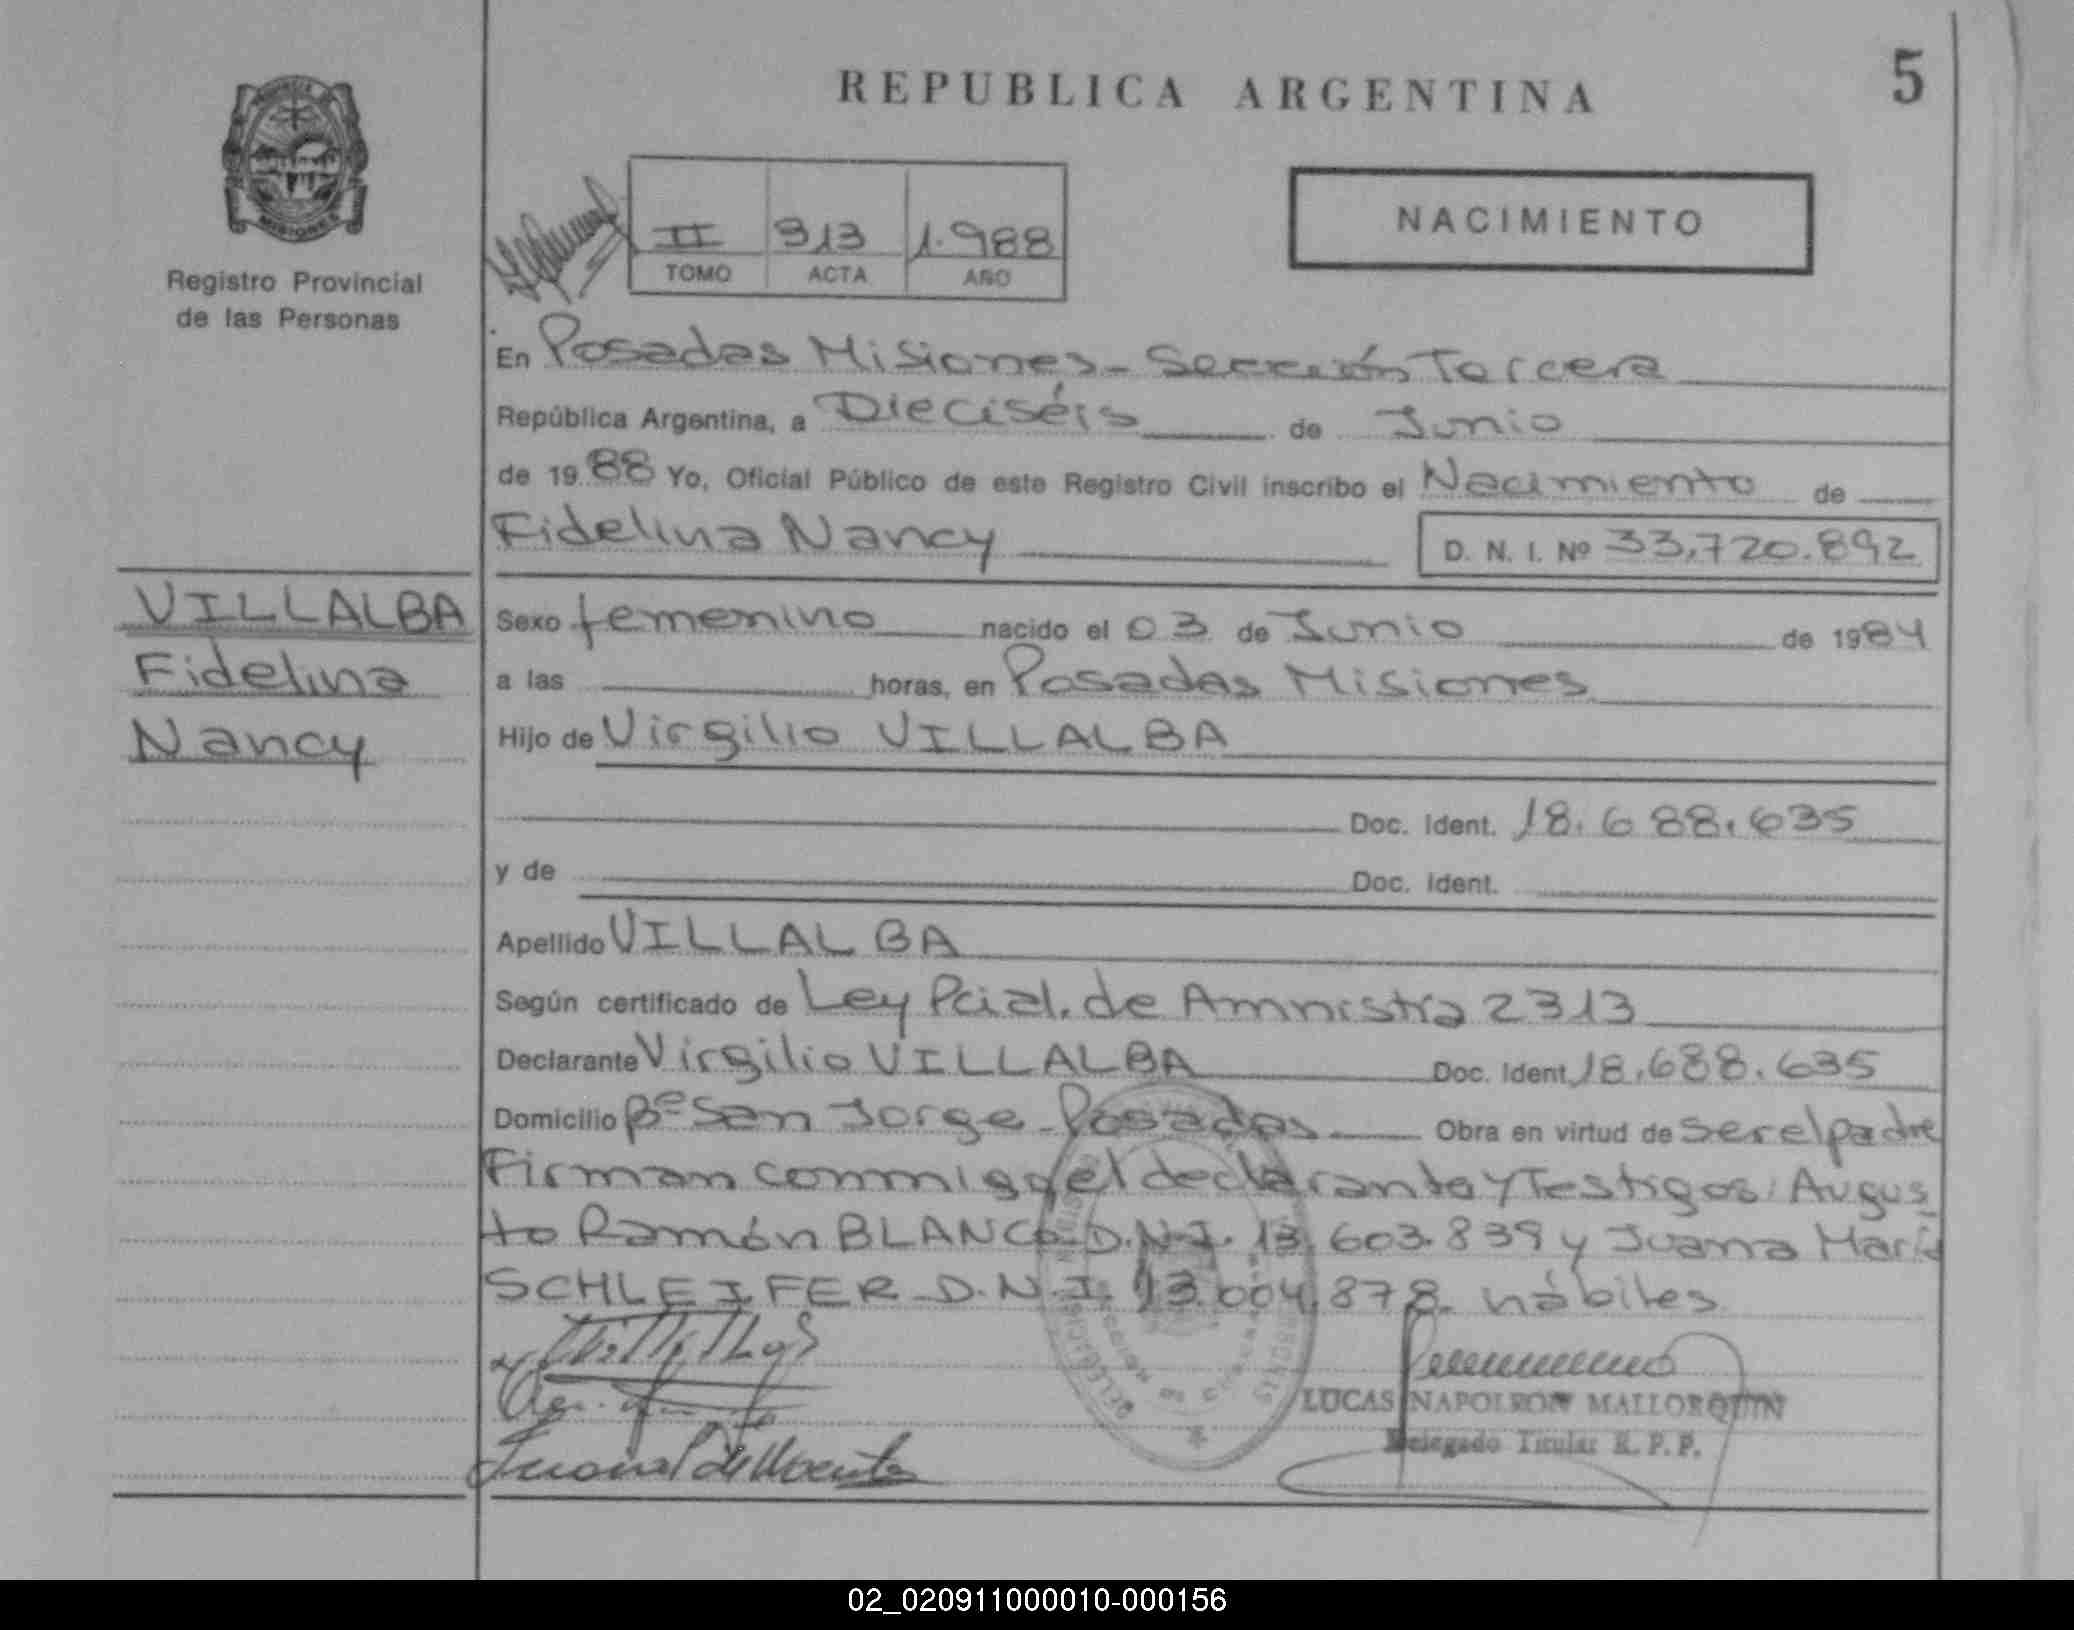 REPUBLICA ARGENTINA
5
MISIONES
Registro Provincial
de las Personas
II 313 1.988
TOMO ACTA AÑO
NACIMIENTO
En Posadas Misiones - Sección Tercera
República Argentina, a Dieciséis de Junio
de 1988 Yo, Oficial Público de este Registro Civil inscribo el Nacimiento de
Fidelina Nancy D. N. I. Nº 33.720.892
VILLALBA
Fidelina
Nancy
Sexo femenino nacido el 03 de Junio de 1984
a las horas, en Posadas Misiones
Hijo de Virgilio VILLALBA
Doc. Ident. 18.688.635
y de Doc. Ident.
Apellido VILLALBA
Según certificado de Ley Pcial. de Amnistía 2313
Declarante Virgilio VILLALBA Doc. Ident. 18.688.635
Domicilio Bº San Jorge - Posadas Obra en virtud de ser el padre
Firman conmigo el declarante y Testigos: Augus
to Ramón BLANCO D.N.I. 13.603.839 y Juana María
SCHLEIFER D.N.I. 13.004.878 hábiles
LUCAS NAPOLEON MALLORQUIN
Delegado Titular R. P. P.
02_020911000010-000156